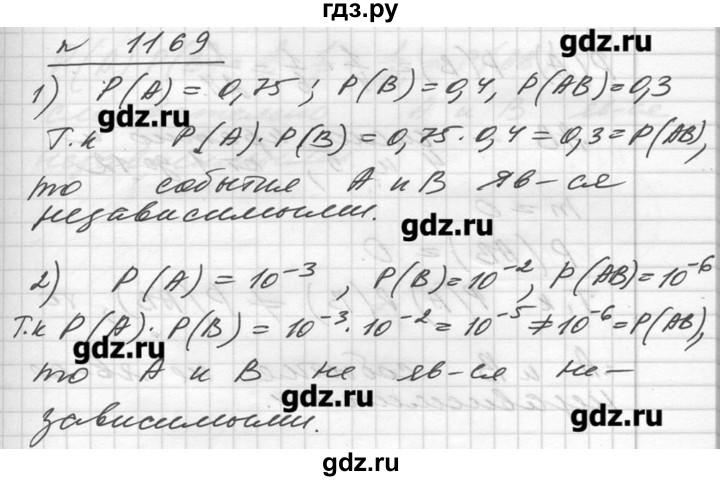 гдз.ру
№ 1169
gdz.ru
1) P(A) = 0,75; P(B) = 0,4, P(AB) = 0,3
gdz.ru
Т.к P(A)·P(B) = 0,75·0,4 = 0,3 = P(AB),
то события A и B яв-ся
независимыми.
gdz.ru
2) P(A) = 10⁻³, P(B) = 10⁻², P(AB) = 10⁻⁶
Т.к P(A)·P(B) = 10⁻³·10⁻² = 10⁻⁵ ≠ 10⁻⁶ = P(AB),
gdz.ru
то A и B не яв-ся не-
gdz.ru
зависимыми.
gdz.ru
gdz.ru